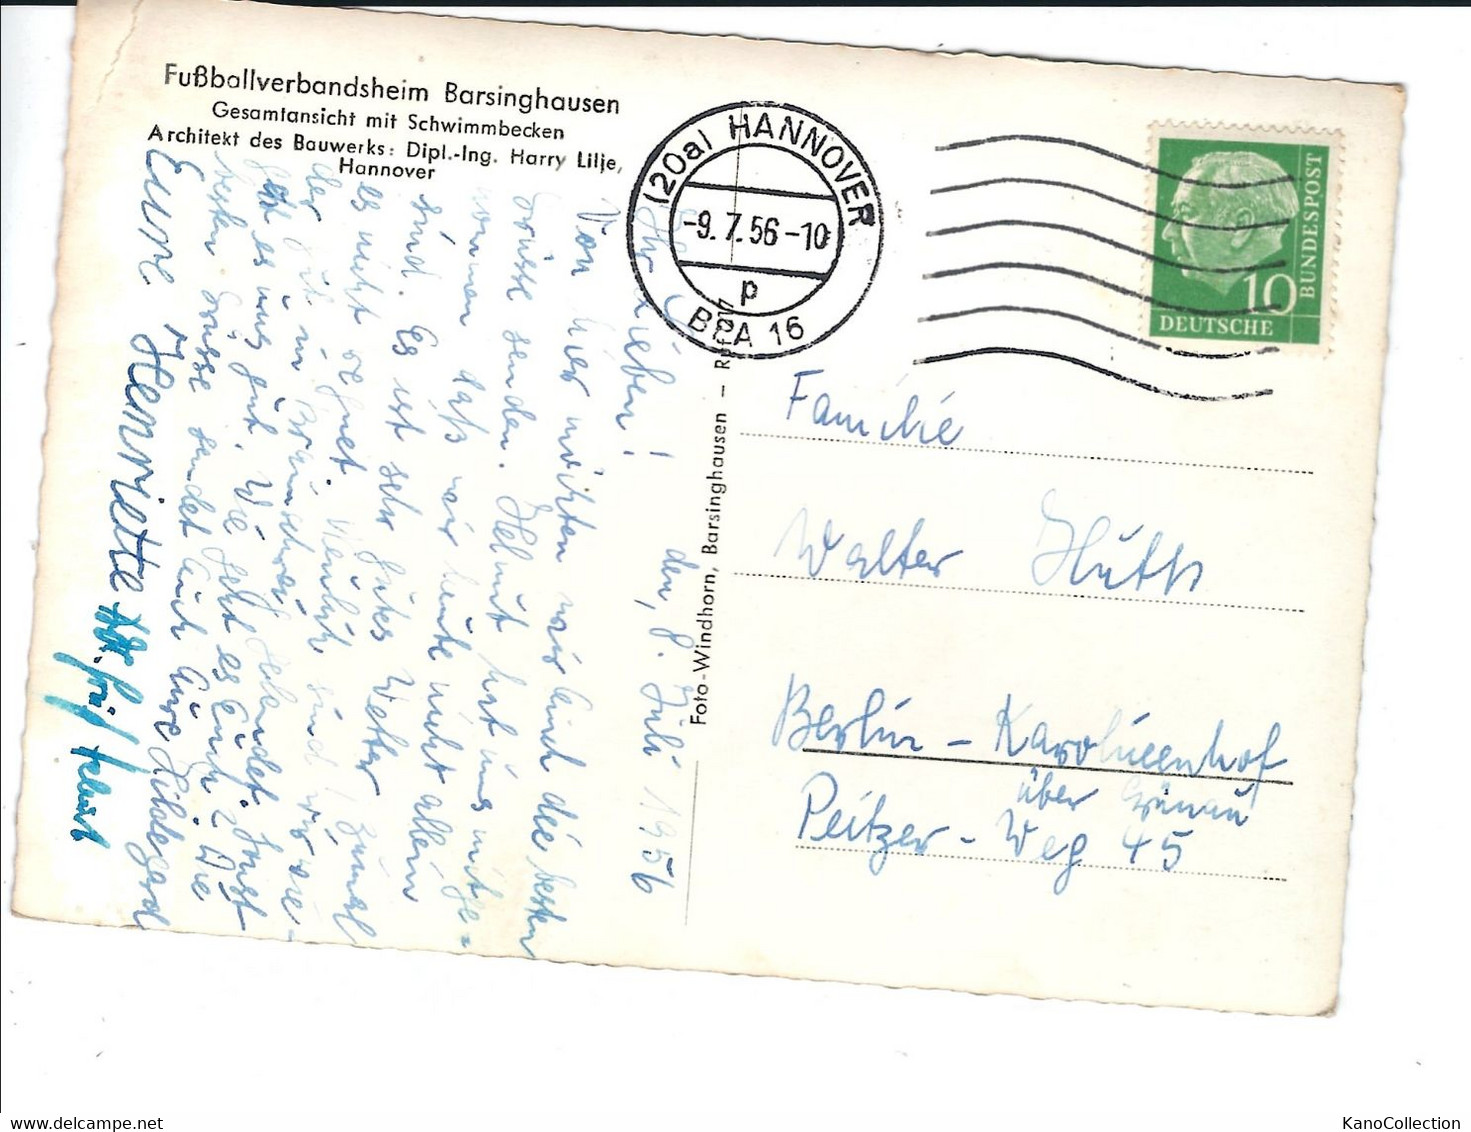 Fußballverbandsheim Barsinghausen
Gesamtansicht mit Schwimmbecken
Architekt des Bauwerks: Dipl.-Ing. Harry Lilje,
Hannover
den, 8. Juli 1956
Ihr Lieben!
Von hier möchten wir Euch die besten
Grüsse senden. Helmut hat uns mitge=
nommen daß wir heute nicht allein
sind. Es ist sehr gutes Wetter
es nicht regnet. Neulich sind wir
der Zeit in Braunschwei
geht es uns gut. Wie geht es Euch? Die
besten Grüsse sendet Euch Eure Hildegard
Eure Henriette
Foto-Windhorn, Barsinghausen —
(20a) HANNOVER
-9.7.56-10
p
BPA 16
DEUTSCHE
BUNDESPOST
10
Familie
Walter Huth
Berlin - Karolinenhof
über Grünau
Peitzer-Weg 45
KanoCollection
delcampe.net